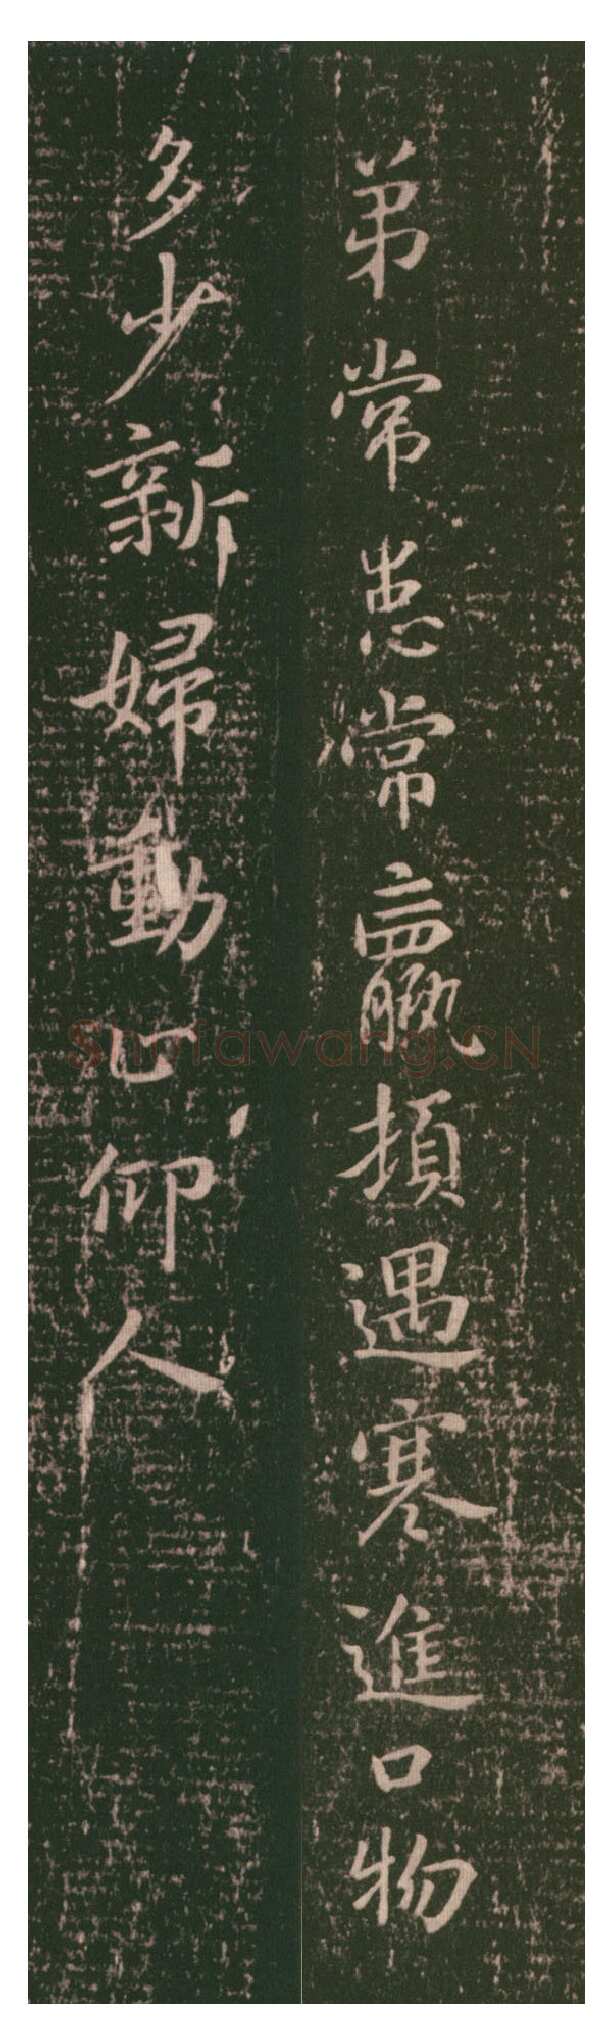 弟常患常羸頓遇寒進口物
多少新婦動心仰人
Shufawang.CN